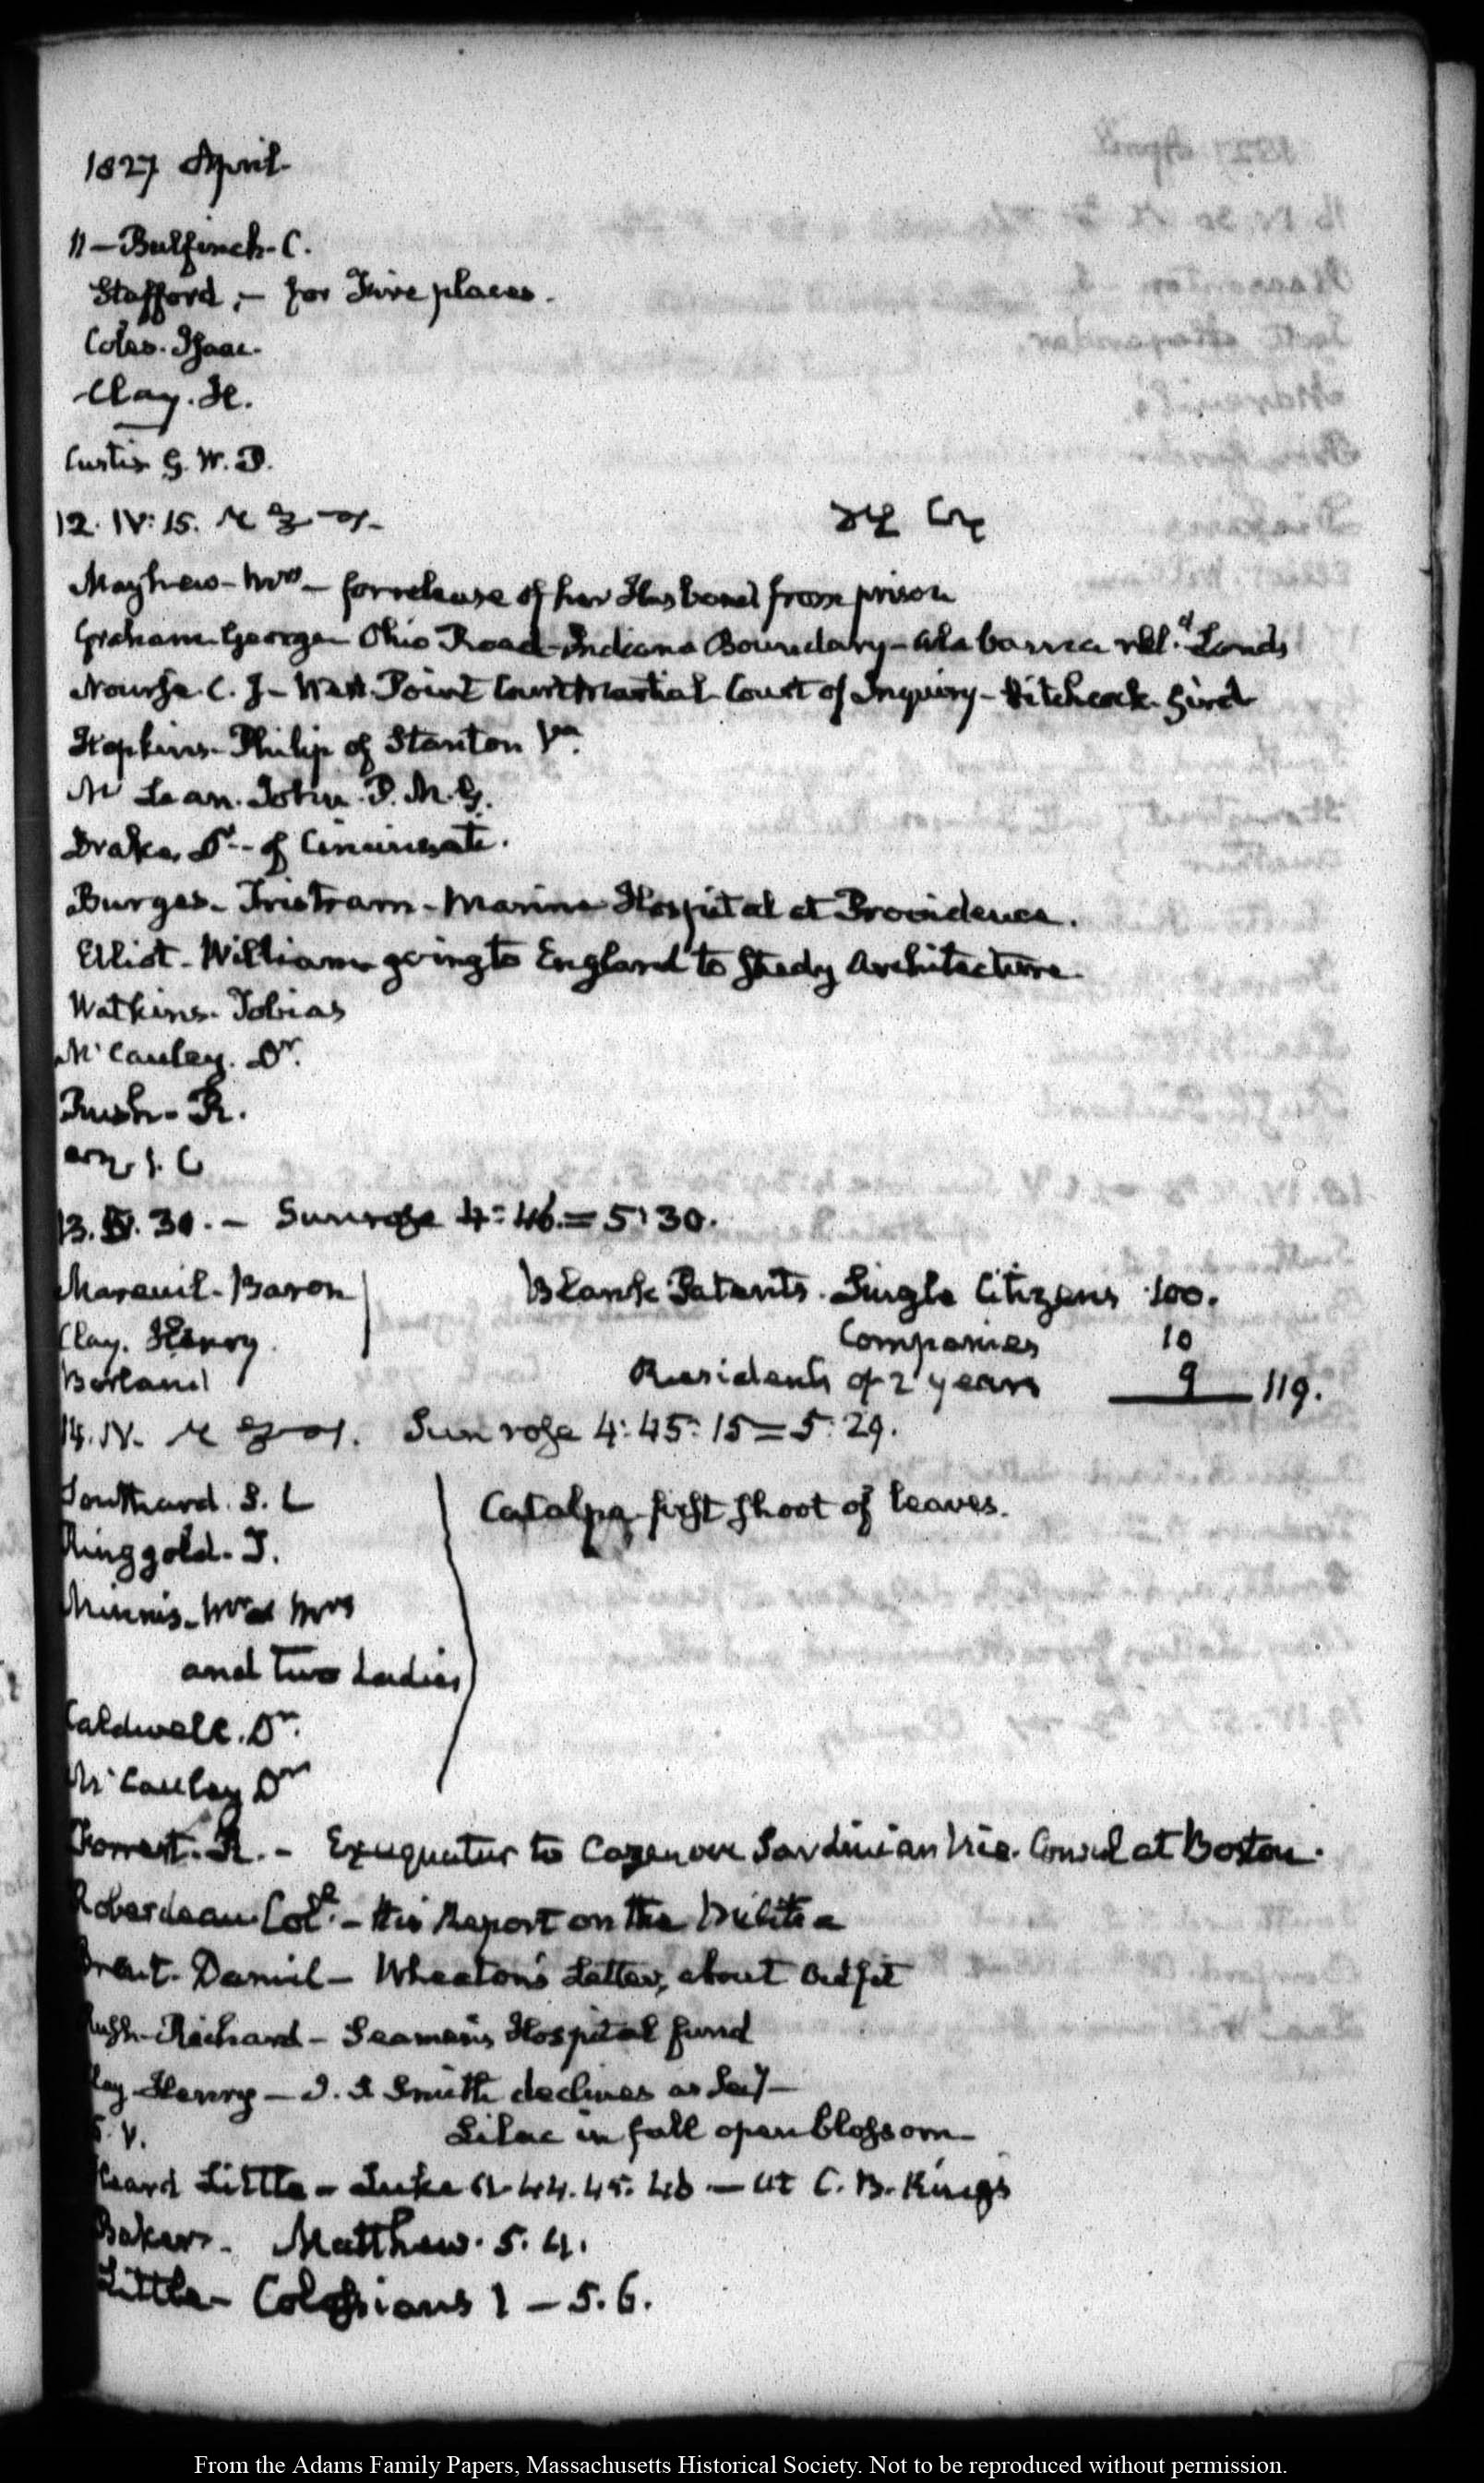 1827 April
11 — Bulfinch. C.
Stafford, — for Fire places.
Coles. Isaac.
Clay. H.
Curtis G. W. P.
12. IV: 15.
Mayhew — Mrs — for release of her Husband from prison
Graham George Ohio Road — Indiana Boundary — Alabama rel.d Lands
Nourse C. J — West Point Court Martial Court of Inquiry — Hitchcock.
Hopkins — Philip of Stanton Va.
Mc Lean. John. P. M. G.
Drake. Dr — of Cincinnati.
Burges — Tristram — Marine Hospital at Providence.
Elliot — William going to England to study Architecture
Watkins. Tobias
McCauley. Dr.
Rush — R.
13. IV. 30. — Sun rose 4:46. = 5:30.
Mareuil — Baron
Blank Patents. Single Citizens 100.
Clay. Henry
Companies 10
Borland
Residents of 2 years 9 119.
14. IV. Sun rose 4:45:15 = 5:29.
Southard. S. L
Catalpa first shoot of leaves.
Ringgold. T.
Minnis. Mr & Mrs
and two Ladies
Caldwell. Dr.
McCauley Dr
Forrest. R. — Exequatur to Cazenove Sardinian Vice. Consul at Boston.
Roberdeau Col.l — His Report on the Militia
Brent. Daniel — Wheaton's Letter, about outfit
Rush — Richard — Seamen's Hospital fund
Clay Henry — declines as Sec.y —
15. V. Lilac in full open blossom
Heard Little — Luke 12. 44. 45. 46 — at C. B. King's
Baker. Matthew. 5. 4.
Little — Colossians 1 — 5. 6.
From the Adams Family Papers, Massachusetts Historical Society. Not to be reproduced without permission.